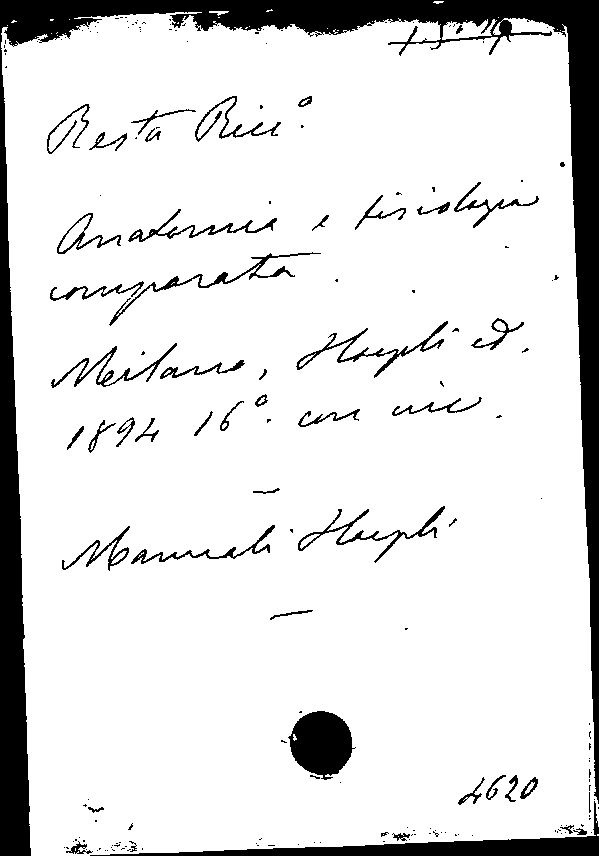 Resta Ricc°.
Anatomia e fisiologia
comparata.
Milano, Hoepli ed.
1894 16°. con inc.
Manuali Hoepli
4620